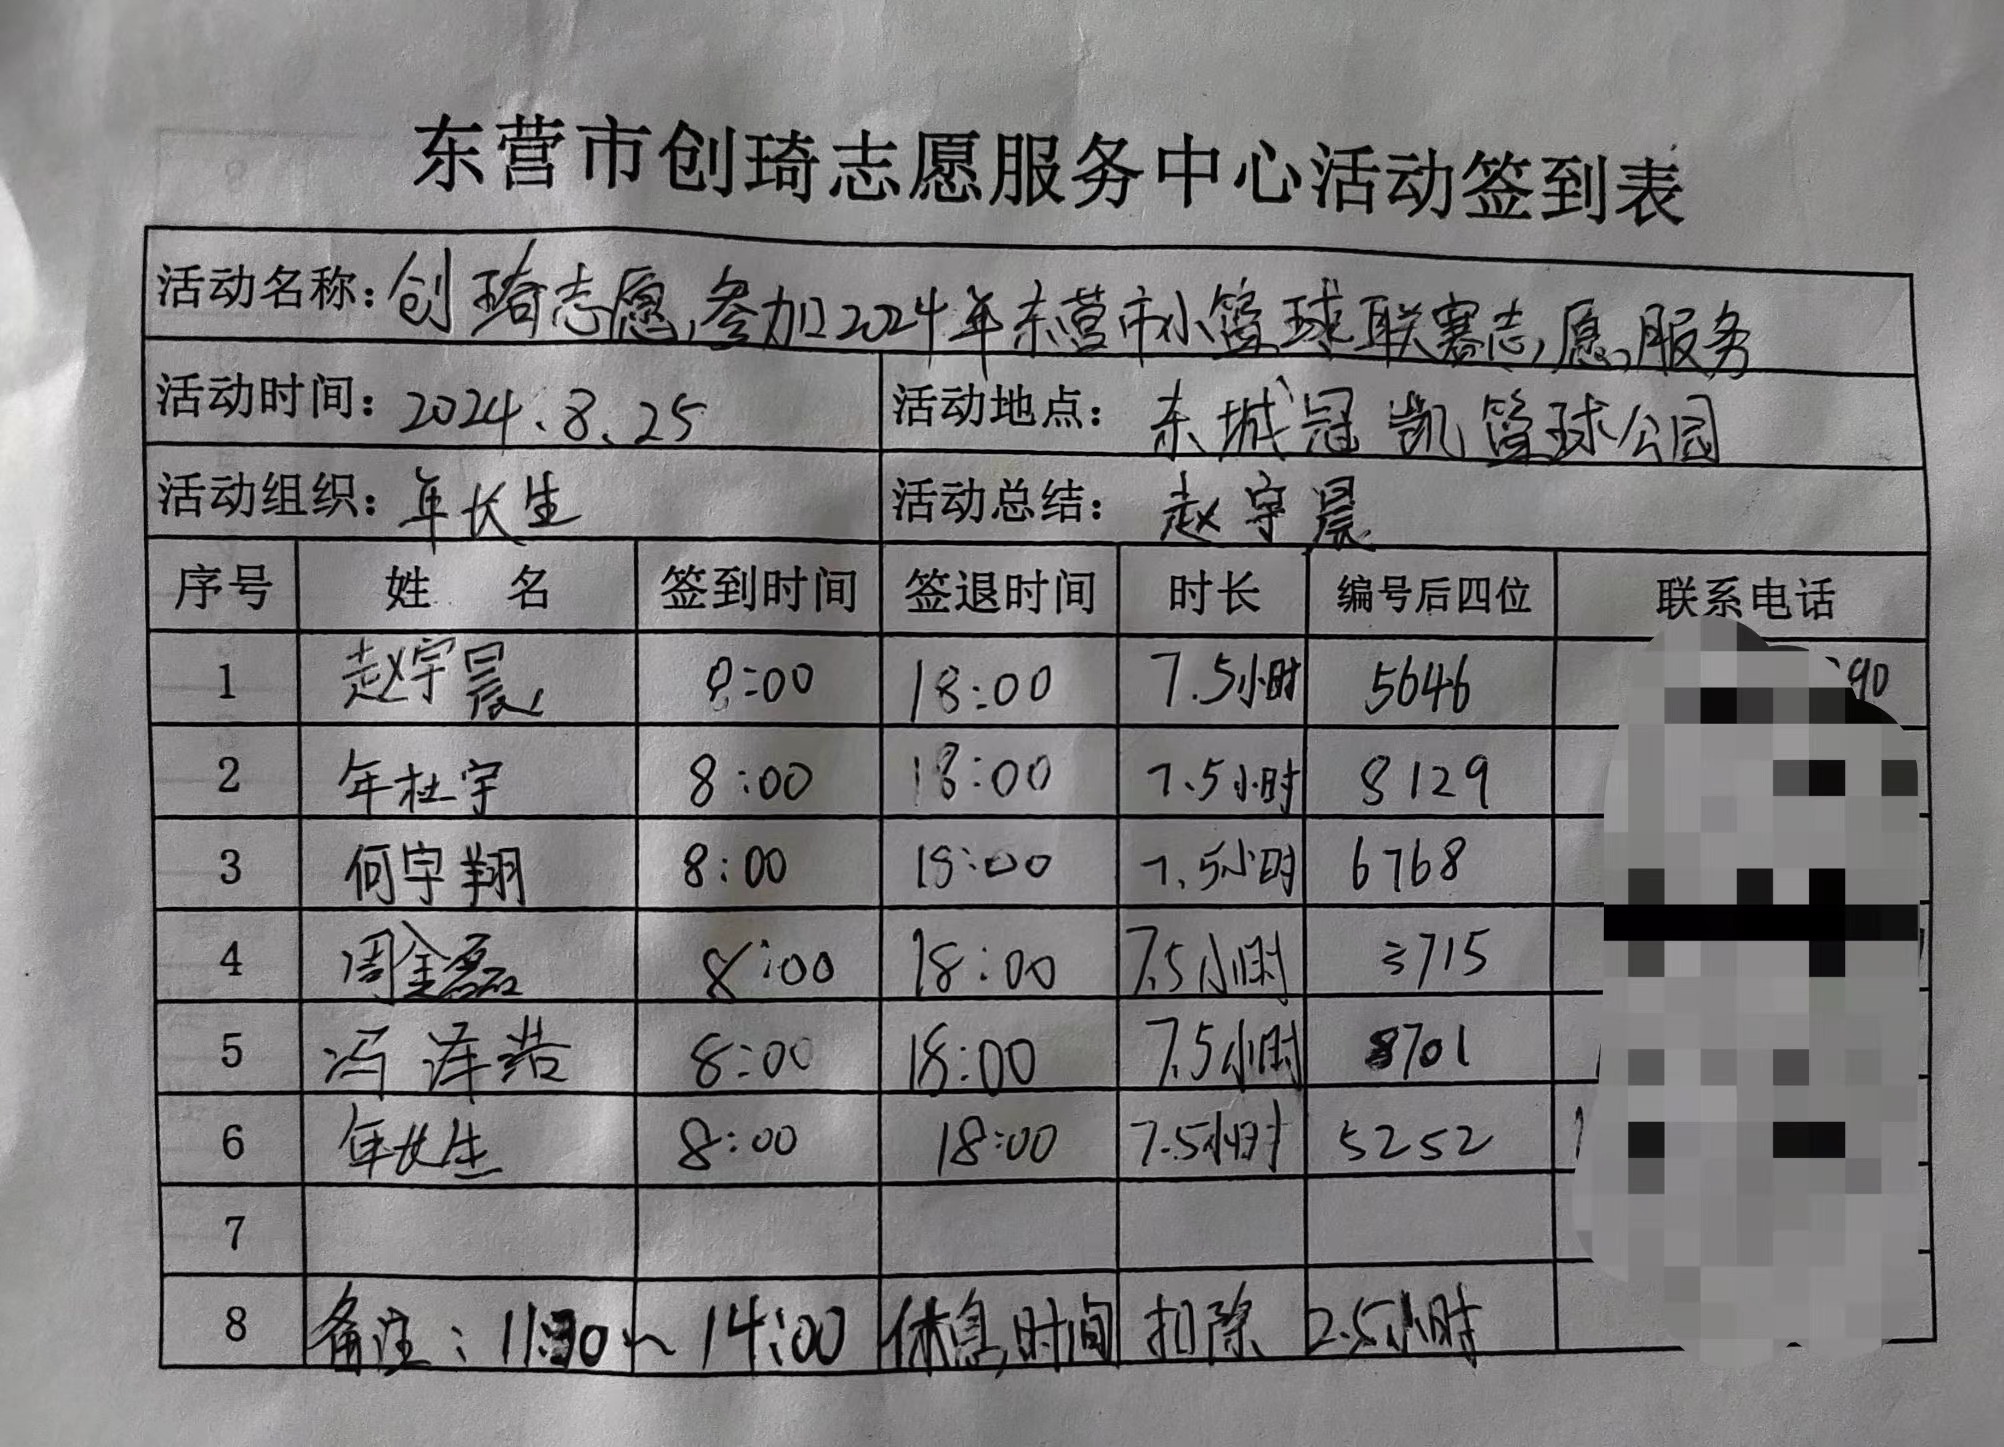 东营市创琦志愿服务中心活动签到表
活动名称：创琦志愿参加2024年东营市小篮球联赛志愿服务
活动时间：2024.8.25 活动地点：东城冠凯篮球公园
活动组织：年长生 活动总结：赵宇晨
序号 姓名 签到时间 签退时间 时长 编号后四位 联系电话
1 赵宇晨 8:00 18:00 7.5小时 5646 90
2 年杜宇 8:00 18:00 7.5小时 8129
3 何宇翔 8:00 18:00 7.5小时 6768
4 周金磊 8:00 18:00 7.5小时 3715
5 冯泽浩 8:00 18:00 7.5小时 8701
6 年长生 8:00 18:00 7.5小时 5252
7
8 备注：11:30~14:00休息时间扣除2.5小时